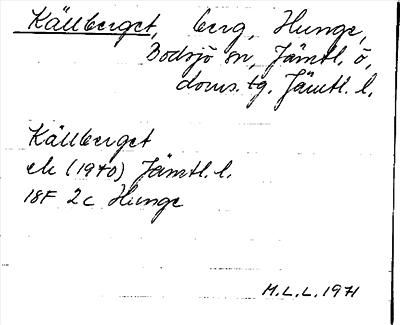 Källberget, berg, Hunge,
Bodsjö sn, Jämtl. ö,
doms. tg. Jämtl. l.
Källberget
ek (1940) Jämtl. l.
18F 2c Hunge
M.L.L. 1971